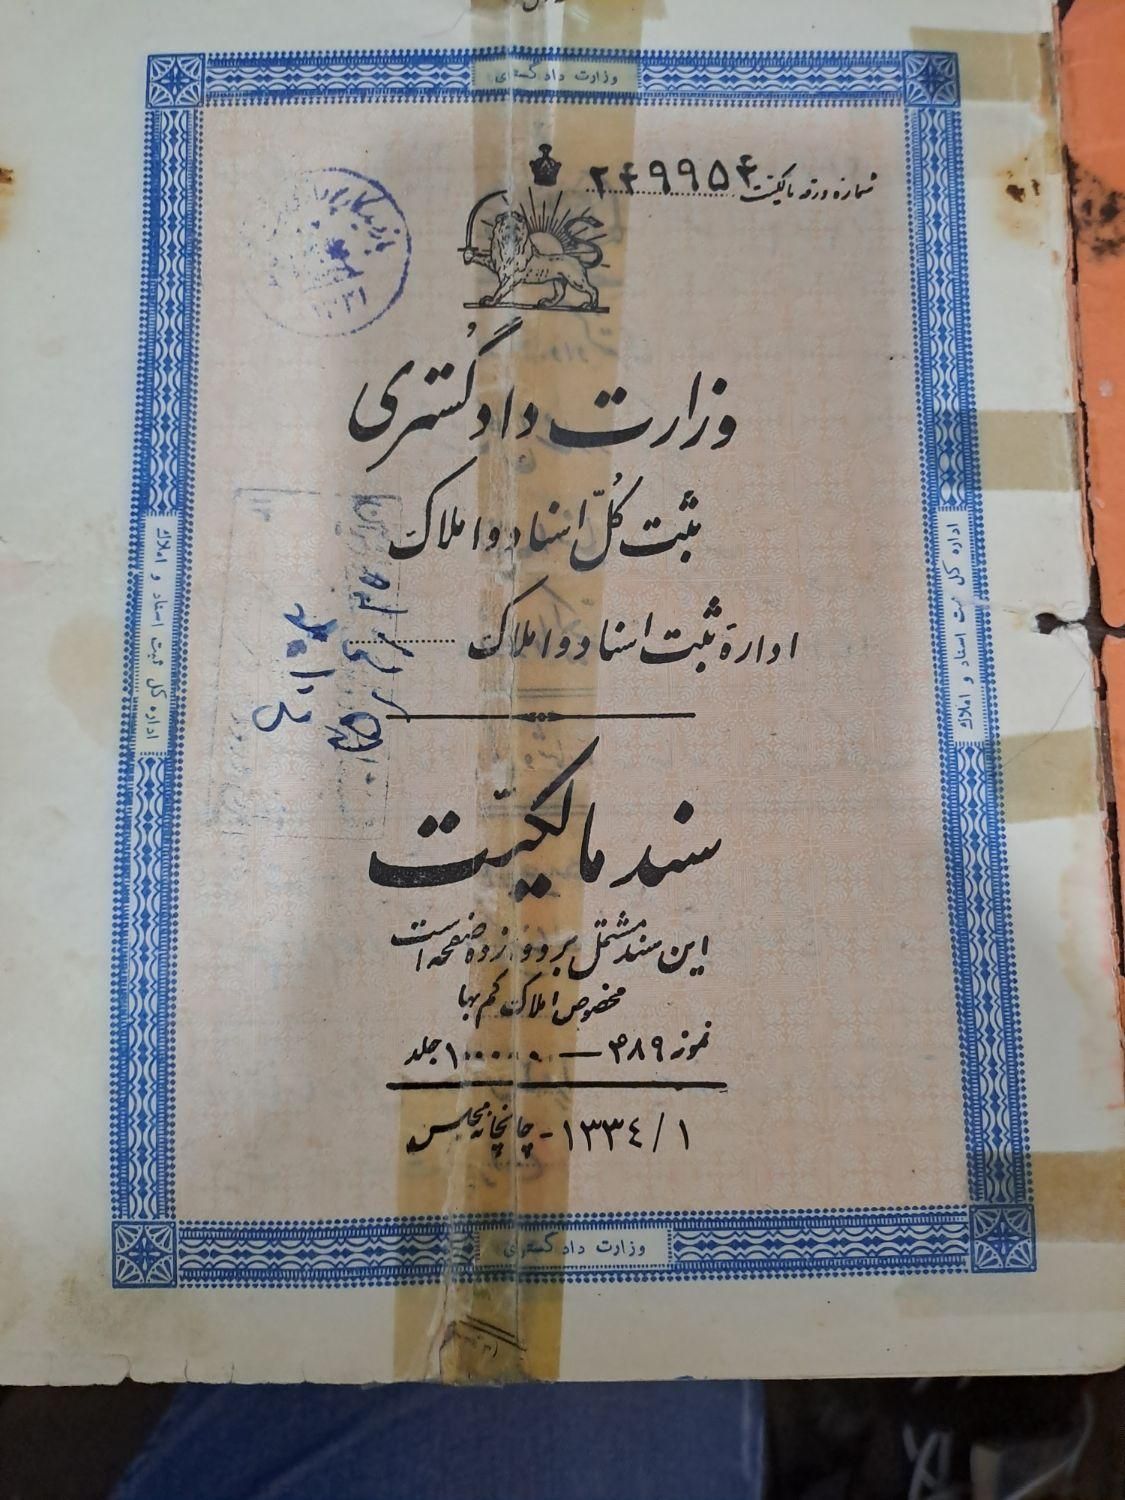 وزارت دادگستری
شماره ورقه مالکیت ۲۴۹۹۵۴
بازرسی
۱۳۳۱
وزارت دادگستری
ثبت کلّ اسناد و املاک
ادارهٔ ثبت اسناد و املاک
سند مالکیّت
این سند مشتمل بر دوازده صفحه است
مخصوص املاک کم بها
نمونه ۳۸۹ — ۱۰۰۰۰۰۰ جلد
۱ / ۱۳۳٤ - چاپخانه مجلس
وزارت دادگستری
اداره کل ثبت اسناد و املاک
اداره کل ثبت اسناد و املاک